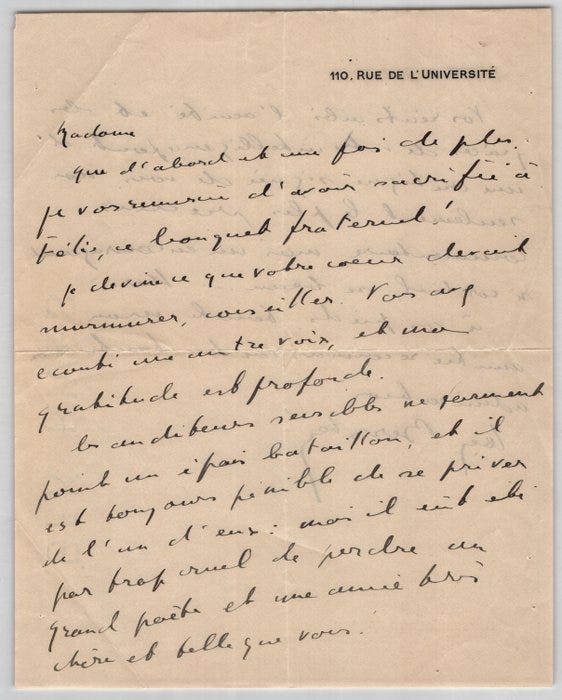 110. RUE DE L'UNIVERSITÉ
Madame
que d'abord et une fois de plus
je vous remercie d'avoir sacrifié à
ce bouquet fraternel!
je devine ce que votre coeur devait
murmurer, conseiller. Vous avez
écouté une autre voix, et ma
gratitude est profonde.
les auditeurs sensibles ne forment
point un épais bataillon, et il
est toujours pénible de se priver
de l'un d'eux: mais il eût été
par trop cruel de perdre un
grand poète et une amie très
chère et telle que vous!